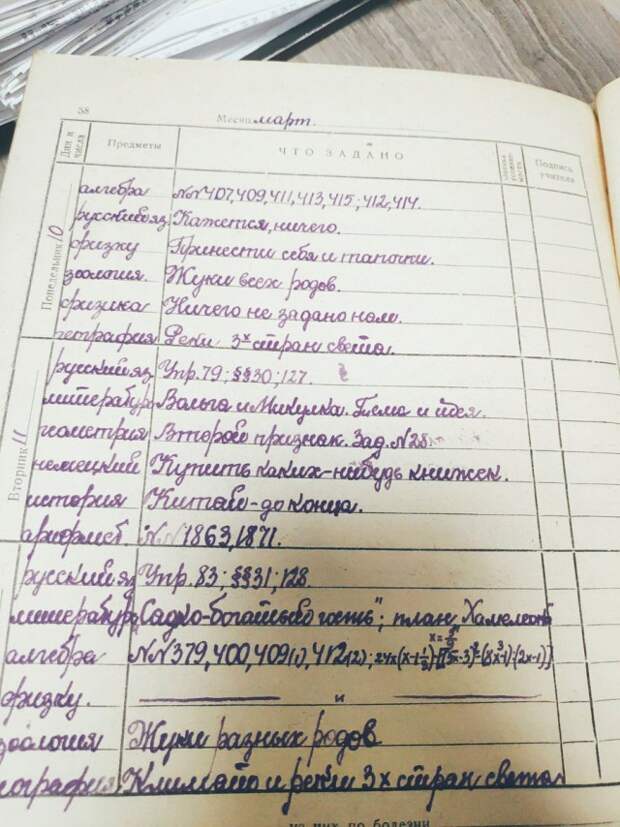 58
Месяц март.
Дни и числа Предметы ЧТО ЗАДАНО Подпись учителя
Понедельник 10
алгебра №№407,409,411,413,415; 412,414.
русский яз. Кажется, ничего.
физку Принести себя и тапочки.
зоология. Жуки всех родов.
физика Ничего не задано нам.
география Реки 3х стран света.
Вторник 11
русский яз. Упр. 79; §§30; 127.
литература Вольга и Микулка. Тема и идея.
геометрия Второй признак. Зад. №28
немецкий Купить каких-нибудь книжек.
история Китай - до конца.
арифмет. №№1863, 1871.
русский яз. Упр. 83; §§31; 128.
литература „Садко-богатый гость"; план, Хамелеон
алгебра №№379, 400, 409(1), 412(2);
физку. и
зоология Жуки разных родов
география Климат и реки 3х стран света
из них по болезни